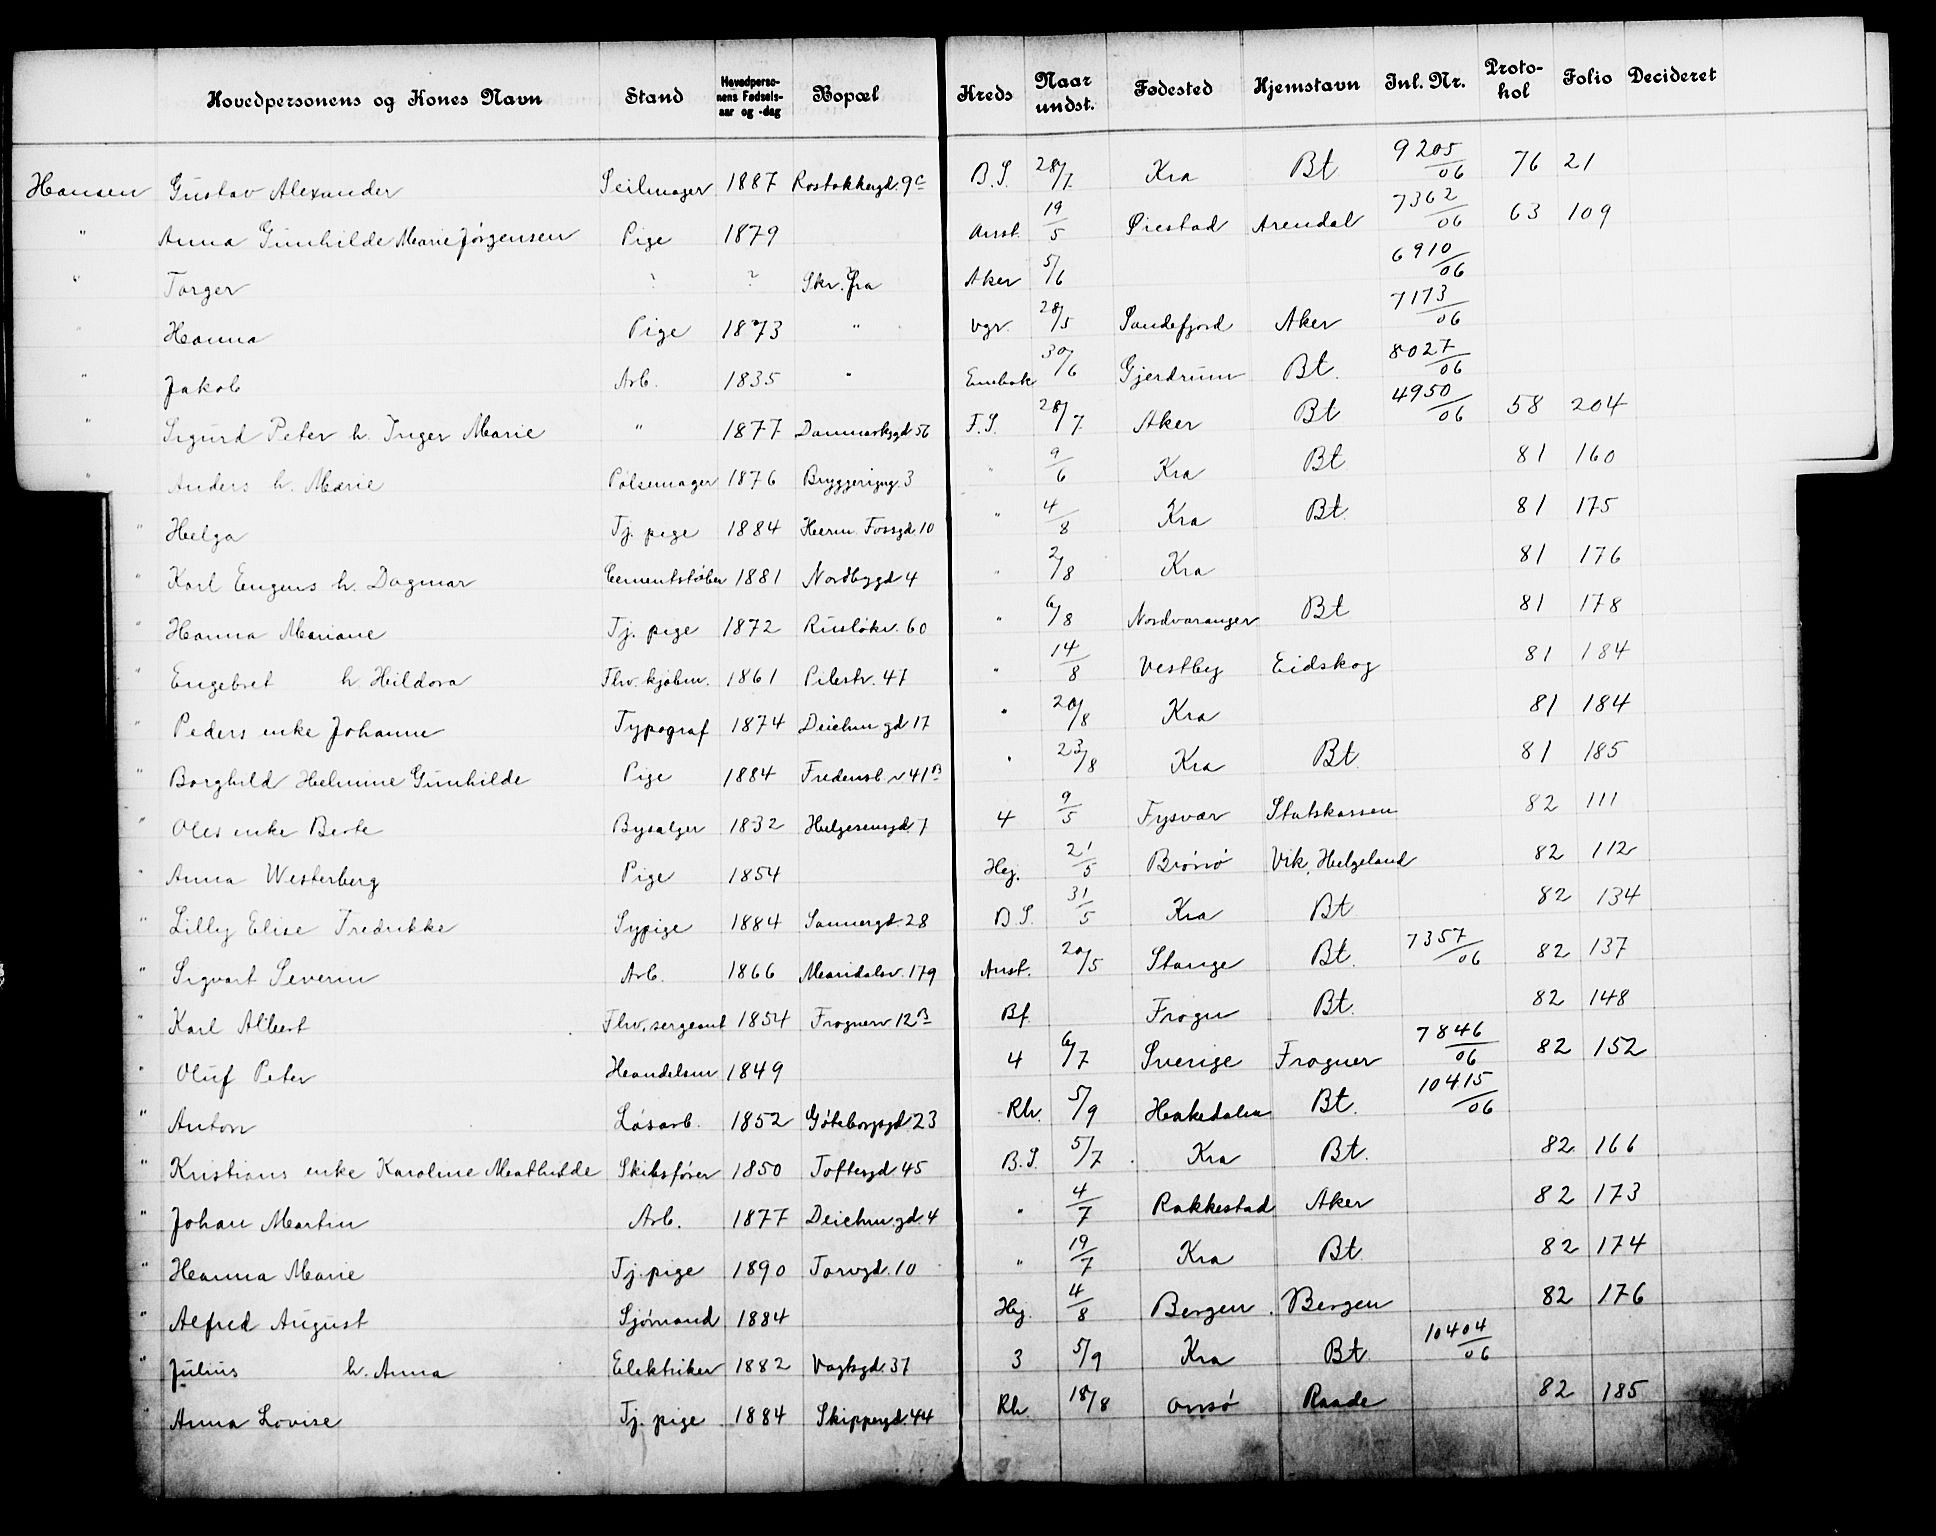 Hovedpersonens og Kones Navn | Stand | Hovedpersonens Fødselsaar og -dag | Bopæl | Kreds | Naar undst. | Fødested | Hjemstavn | Inl. Nr. | Protokol | Folio | Decideret
Hansen Gustav Alexander Seilmager 1887 Rostokkergd. 9c B.S. 28/7 Kra Bt 9205/06 76 21
" Anna Gunhilde Marie Jørgensen Pige 1879 Anst. 19/5 Øiestad Arendal 7362/06 63 109
" Torger ? ? Skr. fra Aker 5/6 6910/06
" Hanna Pige 1873 " Vgr. 28/5 Sandefjord Aker 7173/06
" Jakob Arb. 1835 " Enebak 30/6 Gjerdrum Bt. 8027/06
" Sigurd Peter h. Inger Marie " 1877 Danmarksgd 56 F.S. 28/7 Aker Bt 4950/06 58 204
" Anders h. Marie Pølsemager 1876 Bryggerigng. 3 " 9/6 Kra Bt 81 160
" Helga Tj. pige 1884 Herm. Fossgd 10 " 4/8 Kra Bt. 81 175
" Karl Eugens h. Dagmar Cementstøber 1881 Nordbygd 4 " 2/8 Kra 81 176
" Hanna Mariane Tj. pige 1872 Rusløkv. 60 " 6/8 Nordvaranger Bt 81 178
" Engebret h. Hildora Fhv. kjøbm. 1861 Pilestr. 47 " 14/8 Vestby Eidskog 81 184
" Peders enke Johanne Typograf 1874 Deichm gd 17 " 20/8 Kra 81 184
" Borghild Helmine Gunhilde Pige 1884 Fredensb. v 41B " 23/8 Kra Bt. 81 185
" Oles enke Berte Bysælger 1832 Helgesensgd 7 4 9/5 Tysvær Statskassen 82 111
" Anna Westerberg Pige 1854 Hej. 21/5 Brønø Vik, Helgeland 82 112
" Lilly Elise Fredrikke Sypige 1884 Sannergd. 28 B S. 31/5 Kra Bt 82 134
" Sigvart Severin Arb. 1866 Maridalsv. 179 Anst. 20/5 Stange Bt. 7357/06 82 137
" Karl Albert Fhv. sergeant 1854 Frognerv 12B Bf. Frogn Bt. 82 148
" Oluf Peter Handelsm 1849 4 6/7 Sverige Frogner 7846/06 82 152
" Anton Løsarb. 1852 Gøteborgsgd. 23 Rh. 5/9 Hakedalen Bt. 10415/06
" Kristians enke Karoline Mathilde Skibsfører 1850 Toftesgd. 45 B.S. 5/7 Kra Bt. 82 166
" Johan Martin Arb. 1877 Deichm. gd. 4 " 4/7 Rakkestad Aker 82 173
" Hanna Marie Tj. pige 1890 Torvgd. 10 " 19/7 Kra Bt. 82 174
" Alfred August Sjømand 1884 Hej. 4/8 Bergen Bergen 82 176
" Julius h. Anna Elektriker 1882 Vogtsgd. 37 3 5/9 Kra Bt. 10404/06
" Anna Lovise Tj. pige 1884 Skippergd. 44 Rh. 18/8 Onsø Raade 82 185